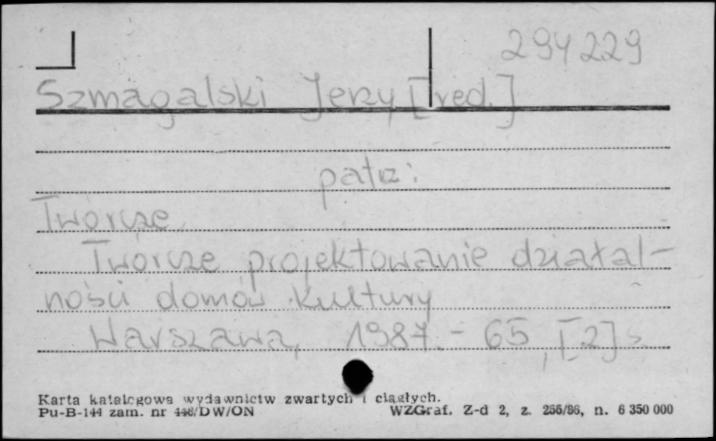 294229
Szmagalski Jerzy [red.]
patrz:
Twórcze
Twórcze projektowanie działal-
ności domów kultury
Warszawa, 1987. - 65, [2] s.
Karta katalogowa wydawnictw zwartych i ciągłych.
Pu-B-144 zam. nr 446/DW/ON WZGraf. Z-d 2, z. 255/86, n. 6 350 000